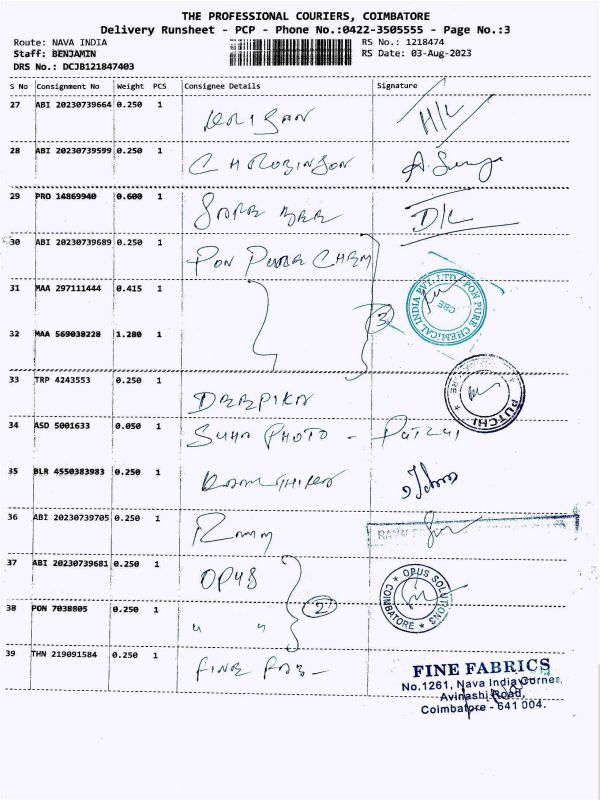 THE PROFESSIONAL COURIERS, COIMBATORE
Delivery Runsheet - PCP - Phone No.:0422-3505555 - Page No.:3
Route: NAVA INDIA
RS No.: 1218474
Staff: BENJAMIN
RS Date: 03-Aug-2023
DRS No.: DCJB121847403
S No Consignment No Weight PCS Consignee Details Signature
27 ABI 20230739664 0.250 1 H/L
28 ABI 20230739599 0.250 1 C H ROBINSON
29 PRO 14869940 0.600 1 D/L
30 ABI 20230739689 0.250 1 PON PURE CHEM
31 MAA 297111444 0.415 1
3
PON PURE CHEMICAL INDIA PVT. LTD. CBE
32 MAA 569038228 1.280 1
33 TRP 4243553 0.250 1 DEEPIKA
34 ASD 5001633 0.050 1 PHOTO -
35 BLR 4550383983 0.250 1
36 ABI 20230739705 0.250 1
37 ABI 20230739681 0.250 1 OPUS
2
OPUS SOLUTIONS COIMBATORE
38 PON 7038805 0.250 1 " "
39 THN 219091584 0.250 1 FINE FAB -
FINE FABRICS
No.1261, Nava India Corner,
Avinashi Road,
Coimbatore - 641 004.